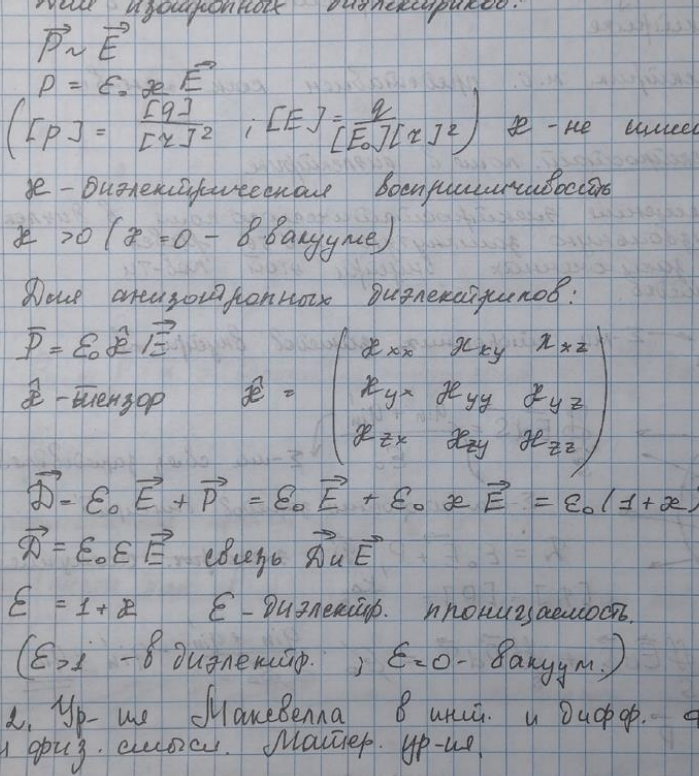 Для изотропных диэлектриков:
P⃗ ~ E⃗
P = ε₀ϰE⃗
([p] = [q]/[r]² ; [E] = q/([E₀][r]²)) ϰ - не
ϰ - диэлектрическая восприимчивость
ϰ > 0 (ϰ = 0 - в вакууме)
Для анизотропных диэлектриков:
P̄ = ε₀ϰ̂E⃗
ϰ̂ - тензор ϰ̂ = (ϰxx ϰxy ϰxz
ϰyx ϰyy ϰyz
ϰzx ϰzy ϰzz)
D⃗ = ε₀E⃗ + P⃗ = ε₀E⃗ + ε₀ϰE⃗ = ε₀(1+ϰ)
D⃗ = ε₀εE⃗ связь D⃗ и E⃗
ε = 1 + ϰ ε - диэлектр. проницаемость.
(ε>1 - в диэлектр. ; ε=0 - вакуум.)
2. Ур-ия Максвелла в инт. и дифф.
физ. смысл. Матер. ур-ия.